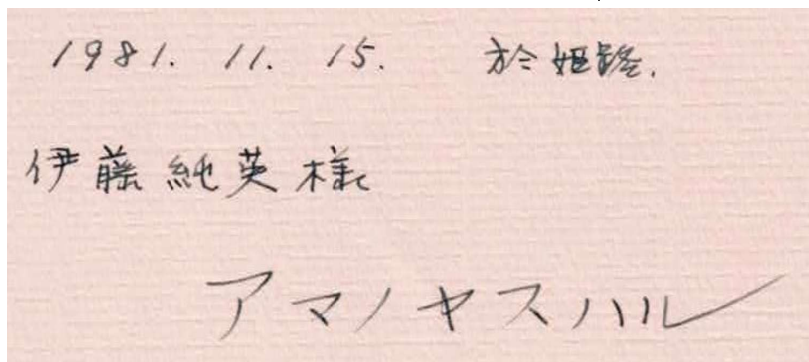 1981. 11. 15. 於姫路.
伊藤純英様
アマノヤスハル